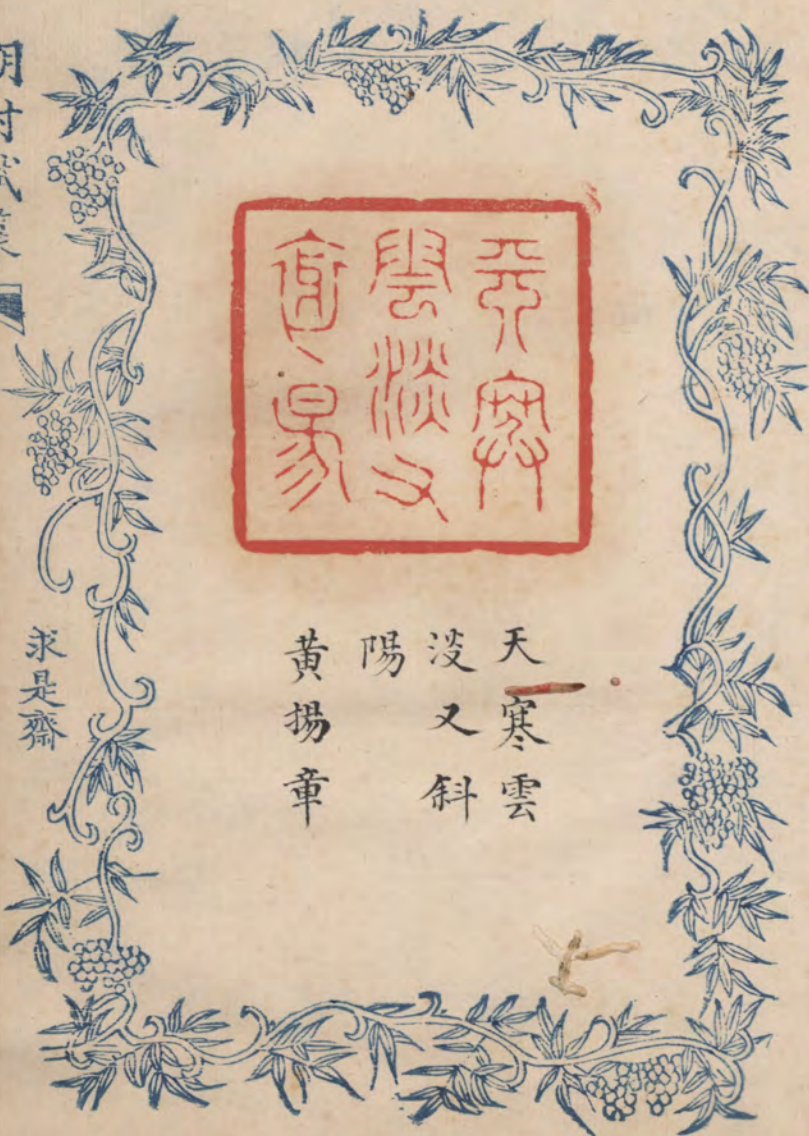 天寒
雲淡又
天寒雲
淡又斜
陽
黃揚章
求是齋